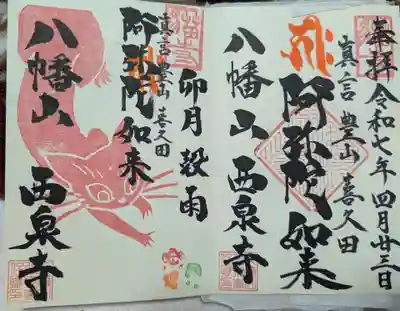 奉拝 令和七年 四月廿三日
真言 豊山 喜久田
阿弥陀如来
八幡山 西泉寺
卯月 穀雨
真言 豊山 喜久田
阿弥陀如来
八幡山 西泉寺